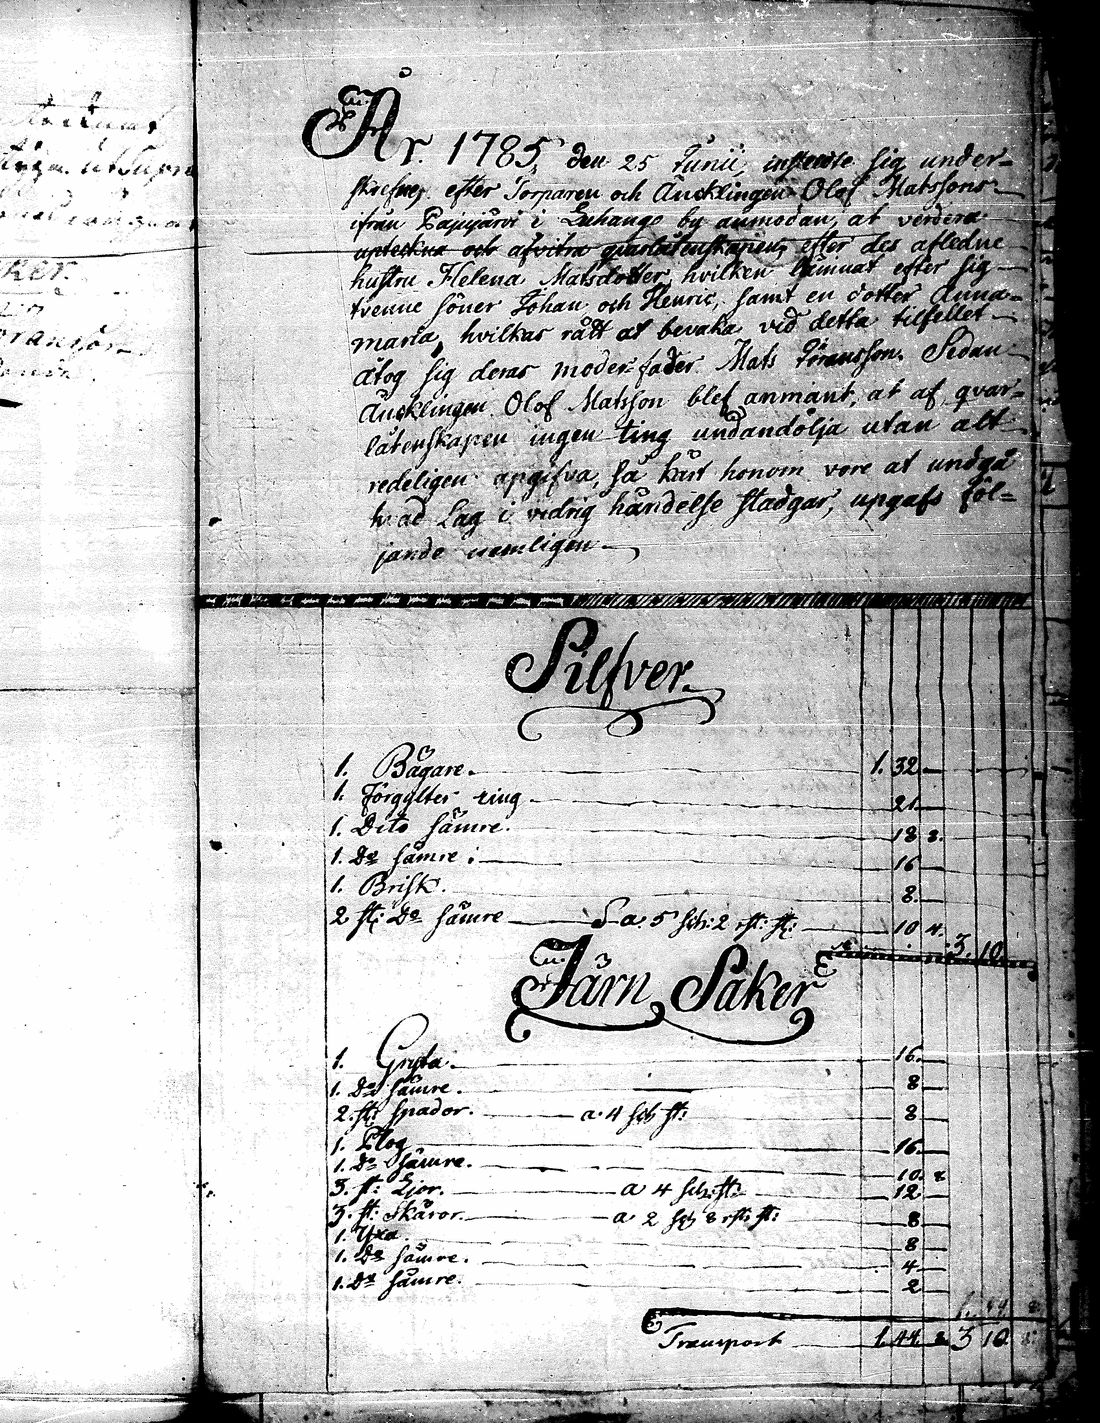 År 1785, den 25 Junii, instente sig under-
skrefne, efter Torparen och Äncklingen Olof Matssons
ifrån Pajujärvi i Luhango by anmodan, at verdera
upteckna och afvitra qvarlåtenskapen, efter des afledne
hustru Helena Matsdotter, hvilken lämnat efter sig
tvenne söner Johan och Henric, samt en dotter Anna
maria, hvilkas rätt at bevaka vid detta tilfellet
åtog sig deras moder fader Mats Göransson. Sedan
Äncklingen Olof Matsson blef anmant, at af qvar-
låtenskapen ingen ting undandölja utan alt
redeligen apgifva, så kärt honom vore at undgå
hvad Lag i vidrig händelse stadgar, upgafs föl-
jande nemligen
Silfver.
1. Bägare. 1. 32
1. Förgylter ring 21
1. Dito sämre. 18 8.
1. Do sämre 16
1. Brisk. 8.
2 st: Do sämre a 5 sch: 2 rst: st: 10 4.
3. 10
Järn Saker
1. Gryta. 16
1. Do sämre. 8
2. st: spador. a 4 sch st: 8
1. Plog 16
1. Do sämre. 10 8
3. st: Lior. a 4 sch: st: 12
3. st: Skäror. a 2 sch 8 rst: st: 8
1. Yxa. 8
1. Do sämre. 4
1. Do sämre. 2
1. 44 8
Transport 1. 44 8 3 10 8